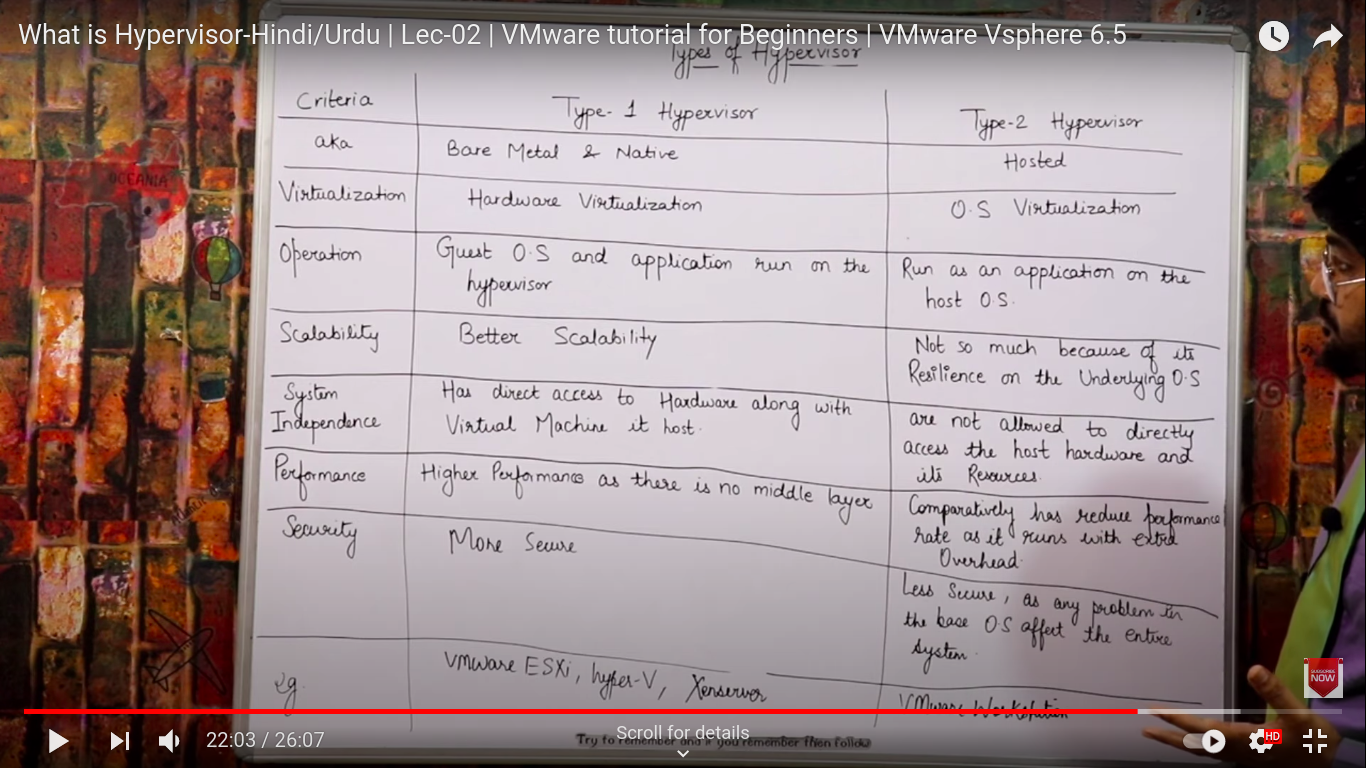 What is Hypervisor-Hindi/Urdu | Lec-02 | VMware tutorial for Beginners | VMware Vsphere 6.5
Types of Hypervisor
Criteria
Type-1 Hypervisor
Type-2 Hypervisor
aka
Bare Metal & Native
Hosted
Virtualization
Hardware Virtualization
O.S Virtualization
Operation
Guest O.S and application run on the
hypervisor
Run as an application on the
host O.S.
Scalability
Better Scalability
Not so much because of its
Resilience on the Underlying O.S
System
Independence
Has direct access to Hardware along with
Virtual Machine it host.
are not allowed to directly
access the host hardware and
its Resources.
Performance
Higher Performance as there is no middle layer
Comparatively has reduce performance
rate as it runs with extra
Overhead.
Security
More Secure
Less Secure, as any problem in
the base O.S affect the entire
system.
eg.
VMware ESXi, hyper-V, Xenserver
VMware Workstation
OCEANIA
SUBSCRIBE
NOW
22:03 / 26:07
Scroll for details
HD
Try to remember and if you remember then follow